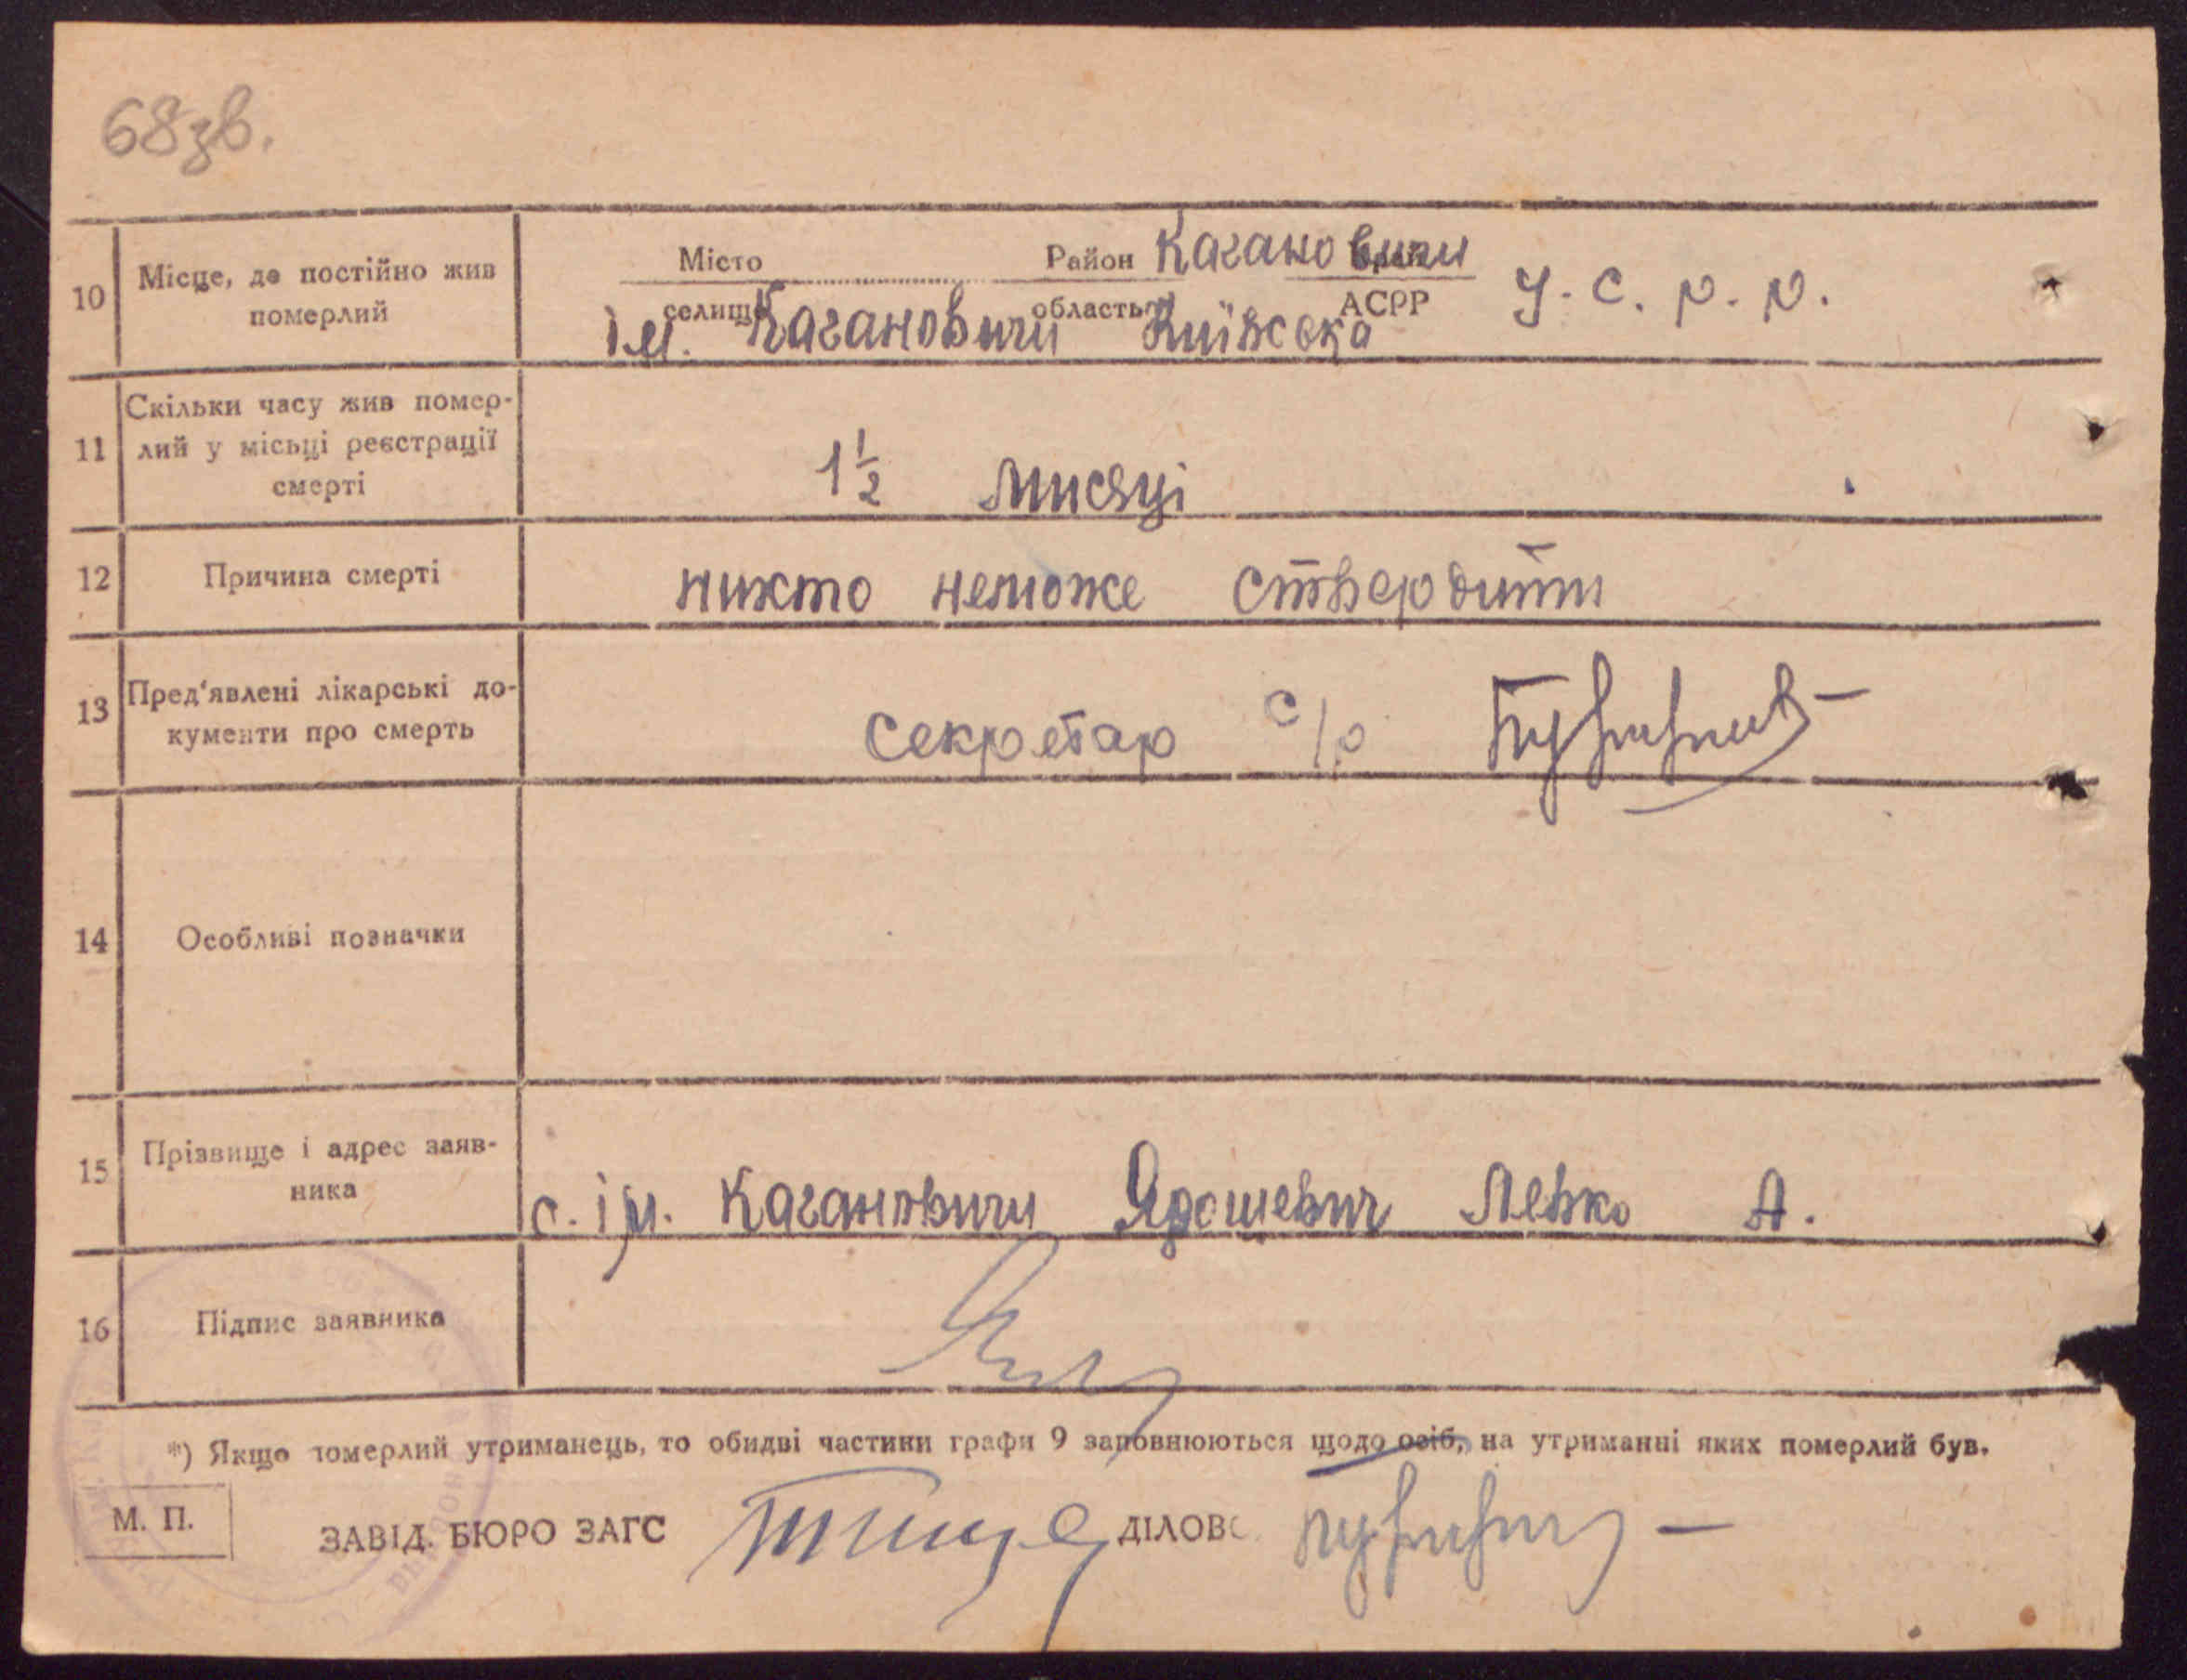 68зв.
10 Місце, де постійно жив померлий
Місто Район Кагановичи край У. С. Р. Р.
селище область АСРР
ім. Кагановичи Київска
11 Скільки часу жив помер-
лий у місьці реєстрації
смерті
1 1/2 мисяці
12 Причина смерті нихто неможе ствердити
13 Пред'явлені лікарські до-
кументи про смерть
секретар с/р
14 Особливі позначки
15 Прізвище і адрес заяв-
ника
с. ім. Кагановичи Ярошевич Левко А.
16 Підпис заявника
*) Якщо померлий утриманець, то обидві частини графи 9 заповнюються щодо осіб, на утриманні яких померлий був.
М. П.
ЗАВІД. БЮРО ЗАГС ДІЛОВ